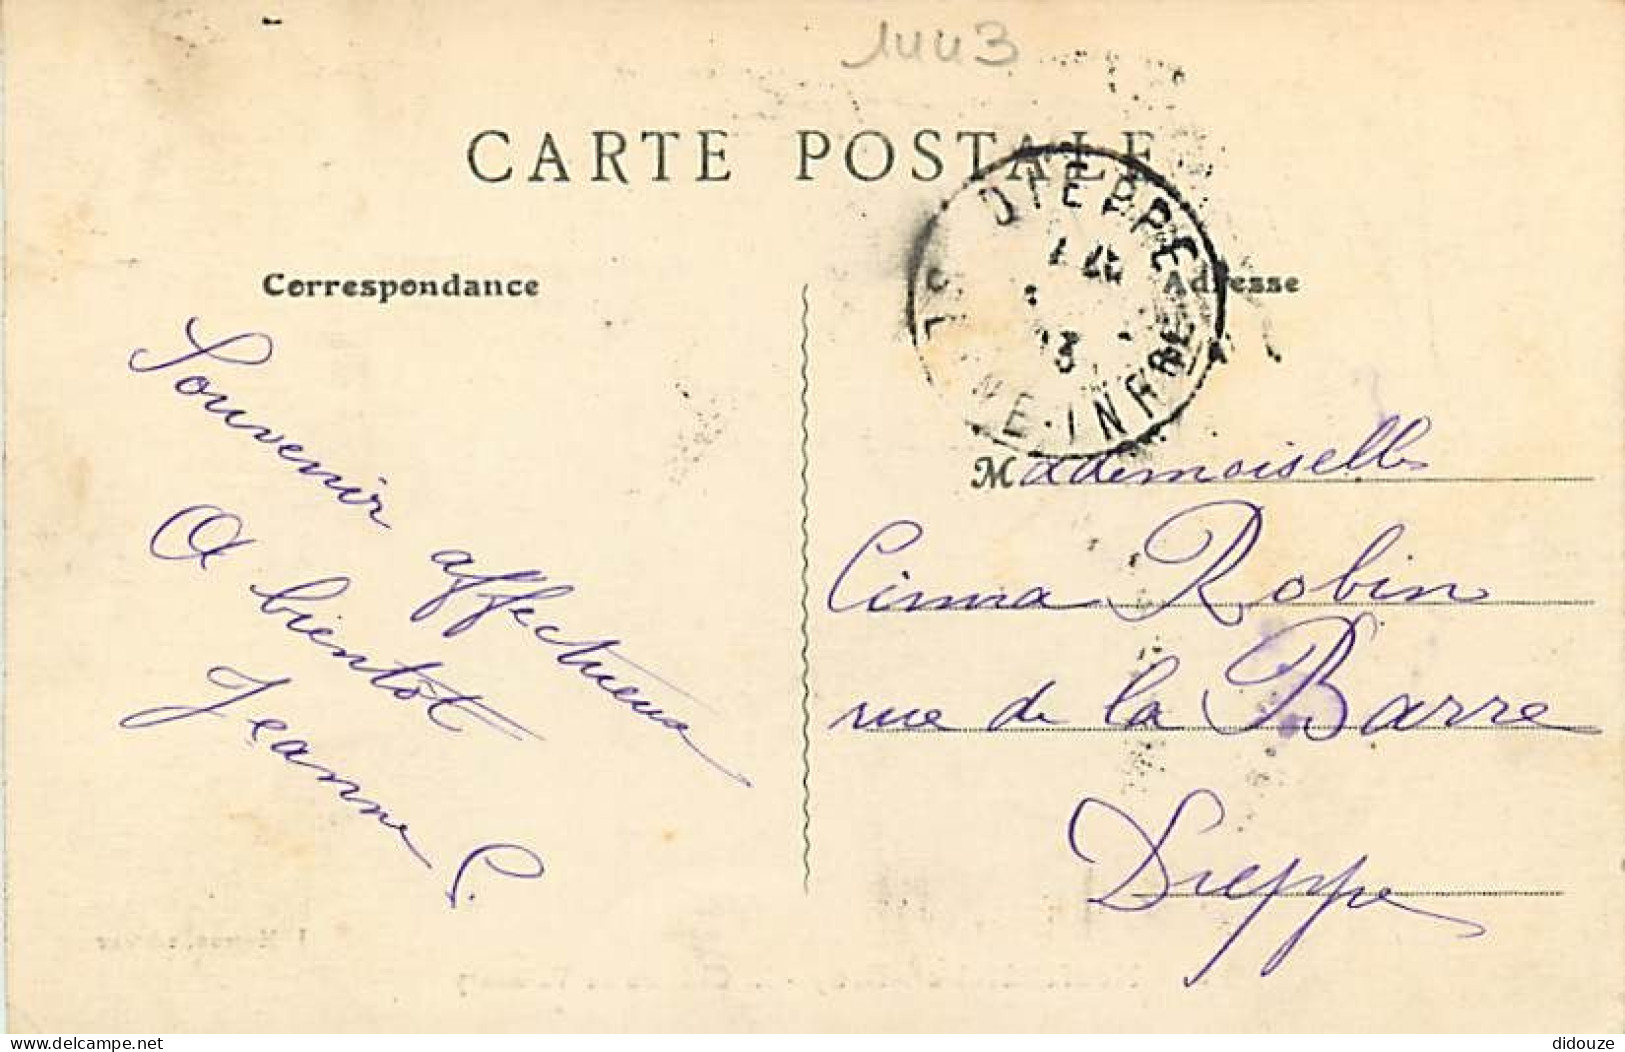 1443
CARTE POSTALE
DIEPPE
Correspondance
Adresse
Souvenir affectueux
A bientôt
Jeanne S.
Mademoiselle
Cinna Robin
rue de la Barre
Dieppe
Edité sur www.delcampe.net
didouze